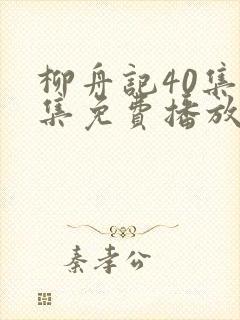 柳舟记40集
集免费播放
秦孝公